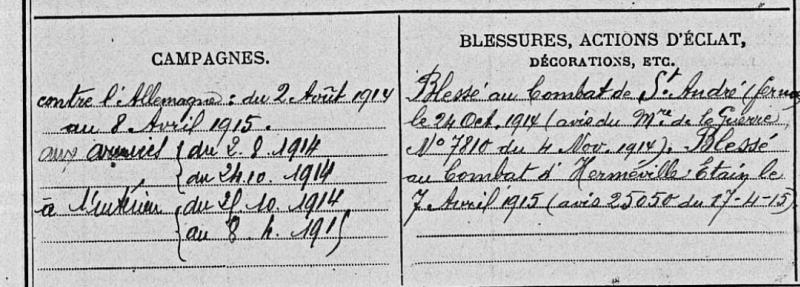 CAMPAGNES.
contre l'Allemagne : du 2 Août 1914
au 8 Avril 1915.
aux armées { du 2. 8. 1914
du 24.10. 1914
à l'intérieur { du 25. 10. 1914
au 8. 4. 1915
BLESSURES, ACTIONS D'ÉCLAT,
DÉCORATIONS, ETC.
Blessé au Combat de St André
le 24 Oct. 1914 (avis du Mre de la Guerre
No 7810 du 4 Nov. 1914). Blessé
au Combat d'Herméville-Etain le
7 Avril 1915 (avis 25050 du 17-4-15)